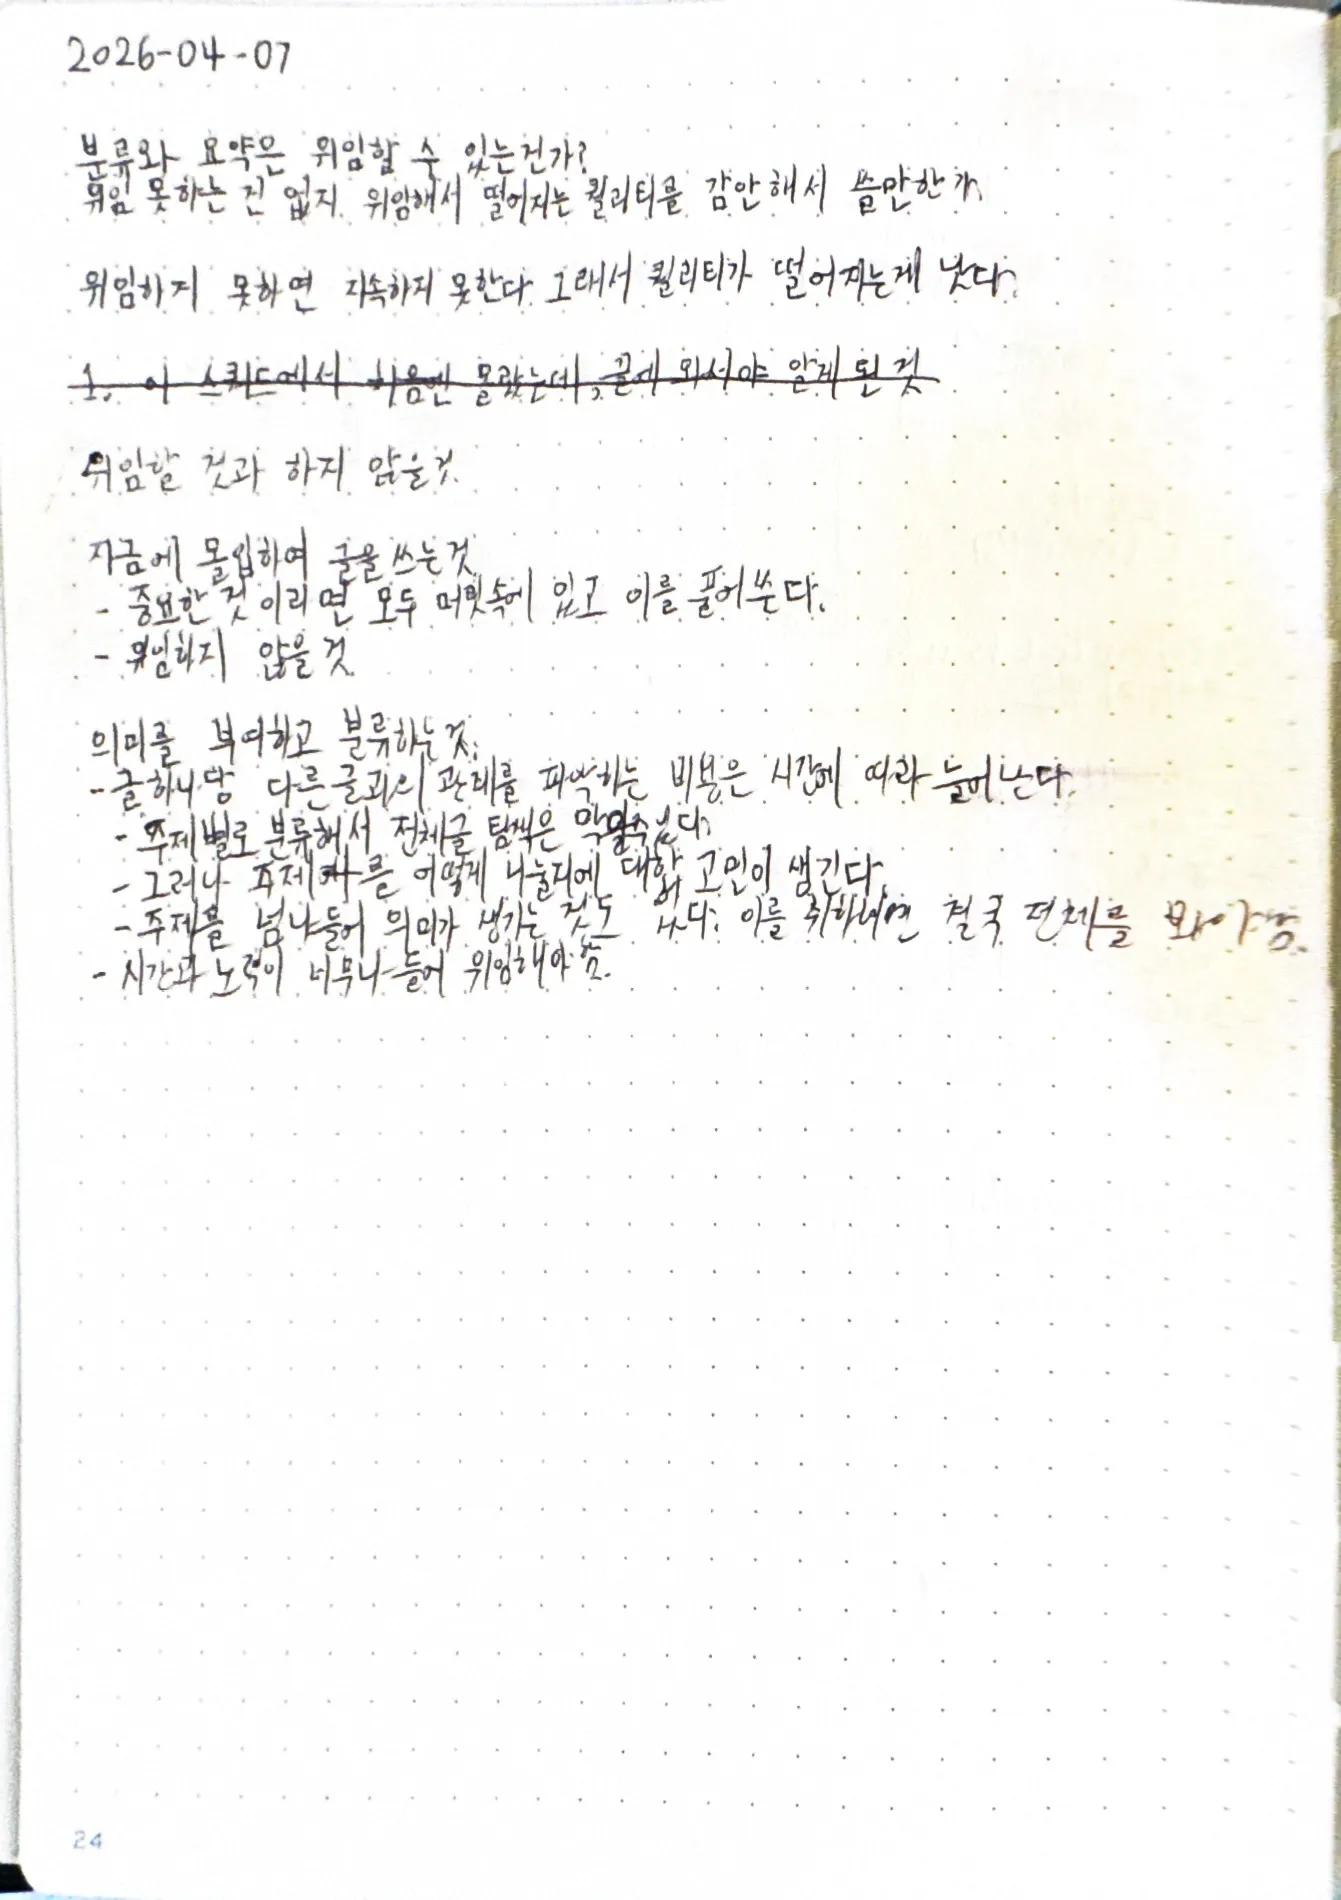 2026-04-07
분류와 요약은 위임할 수 있는건가?
위임 못하는 건 없지. 위임해서 떨어지는 퀄리티를 감안해서 쓸만한가.
위임하지 못하면 지속하지 못한다. 그래서 퀄리티가 떨어지는게 낫다.
1. 이 스쿼드에서 처음엔 몰랐는데, 끝에 와서야 알게 된 것
위임할 것과 하지 않을것.
지금에 몰입하여 글을 쓰는것
- 중요한 것이라면 모두 머릿속에 있고 이를 풀어쓴다.
- 위임하지 않을것
의미를 부여하고 분류하는것.
- 글하나당 다른글과의 관계를 파악하는 비용은 시간에 따라 늘어난다.
- 주제별로 분류해서 전체글 탐색은 막을수 있다.
- 그러나 주제를 어떻게 나눌지에 대한 고민이 생긴다.
- 주제를 넘나들어 의미가 생기는 것도 있다. 이를 취하려면 결국 전체를 봐야함.
- 시간과 노력이 너무나 들어 위임해야함.
24